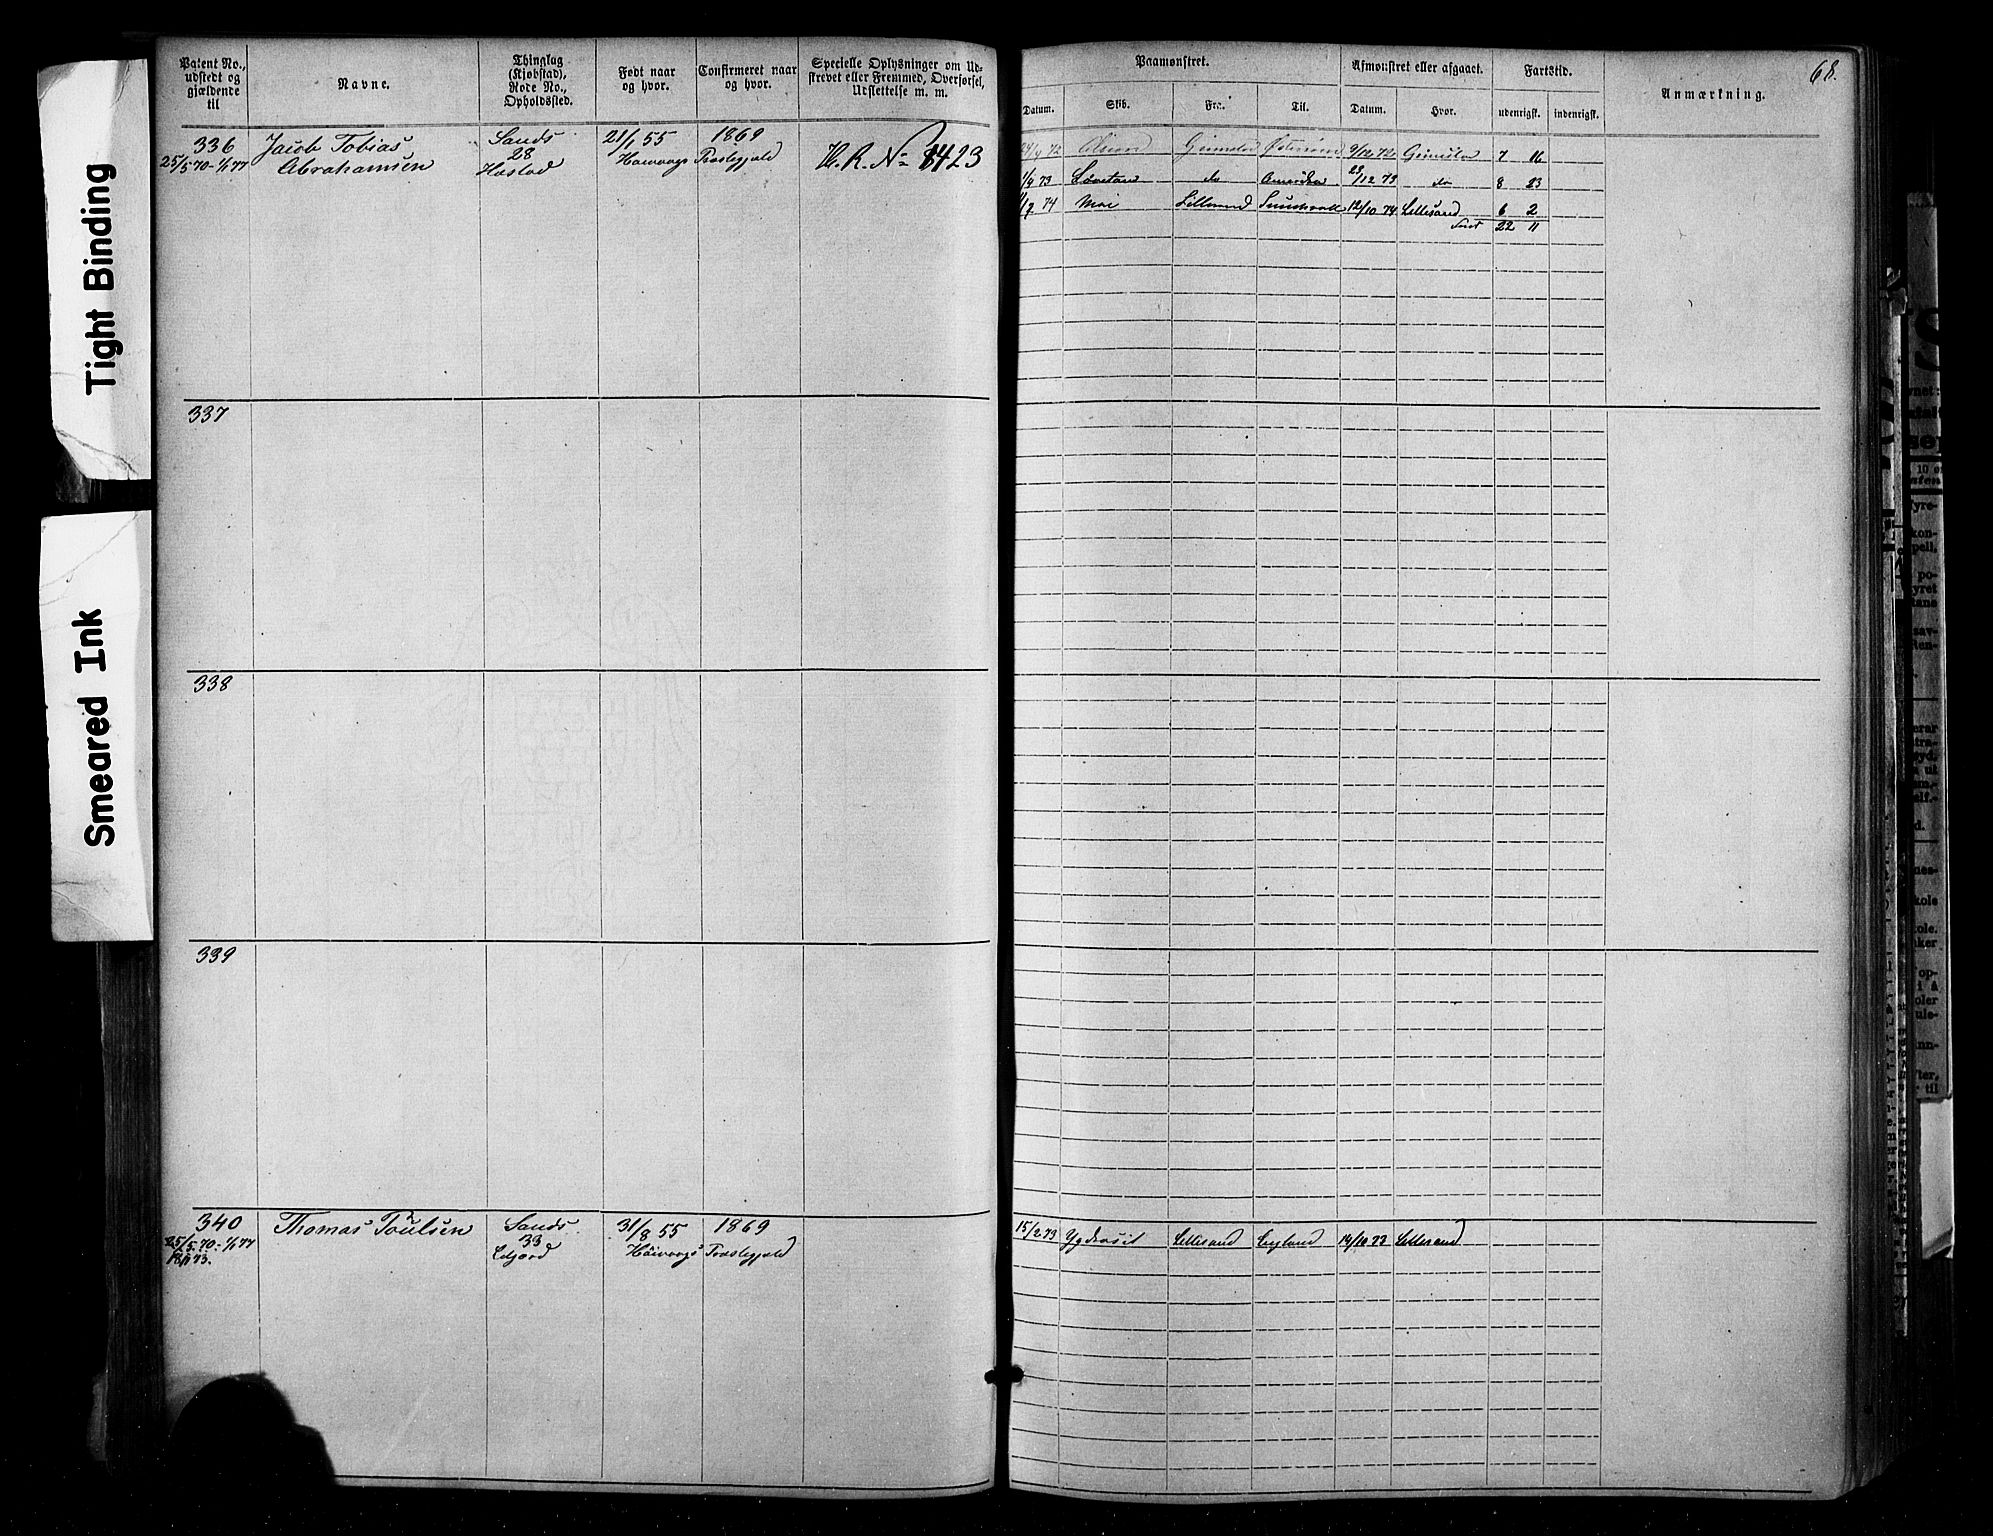 Tight Binding
Smeared Ink
Patent No., udstedt og gjældende til
Navne.
Thinglag (Kjøbstad), Rode No., Opholdssted.
Født naar og hvor.
Confirmeret naar og hvor.
Specielle Oplysninger om Udskrevet eller Fremmed, Overførsel, Udslettelse m. m.
336
25/5 70 - 1/1 77
Jacob Tobias
Abrahamsen
Sands
28
Hæstad
21/1 55
Høivaags Præstegjæld
1869
H. R. No 1423
337
338
339
340
25/5 70 - 1/1 77
Thomas Poulsen
Sands
33
31/8 55
Høivaags Præstegjæld
1869
68.
Paamønstret.
Afmønstret eller afgaaet.
Fartstid.
Anmærkning.
Datum. Skib. Fra. Til. Datum. Hvor. udenrigsk. indenrigsk.
24/4 72 Grimstad 9/12 72 Grimstad 7 16
1/4 73 do Amerika 23/12 73 do 8 23
74 Lillesand 12/10 74 Lillesand 6 2
22 11
15/2 73 Ygdrasil Lillesand England 14/10 73 Lillesand